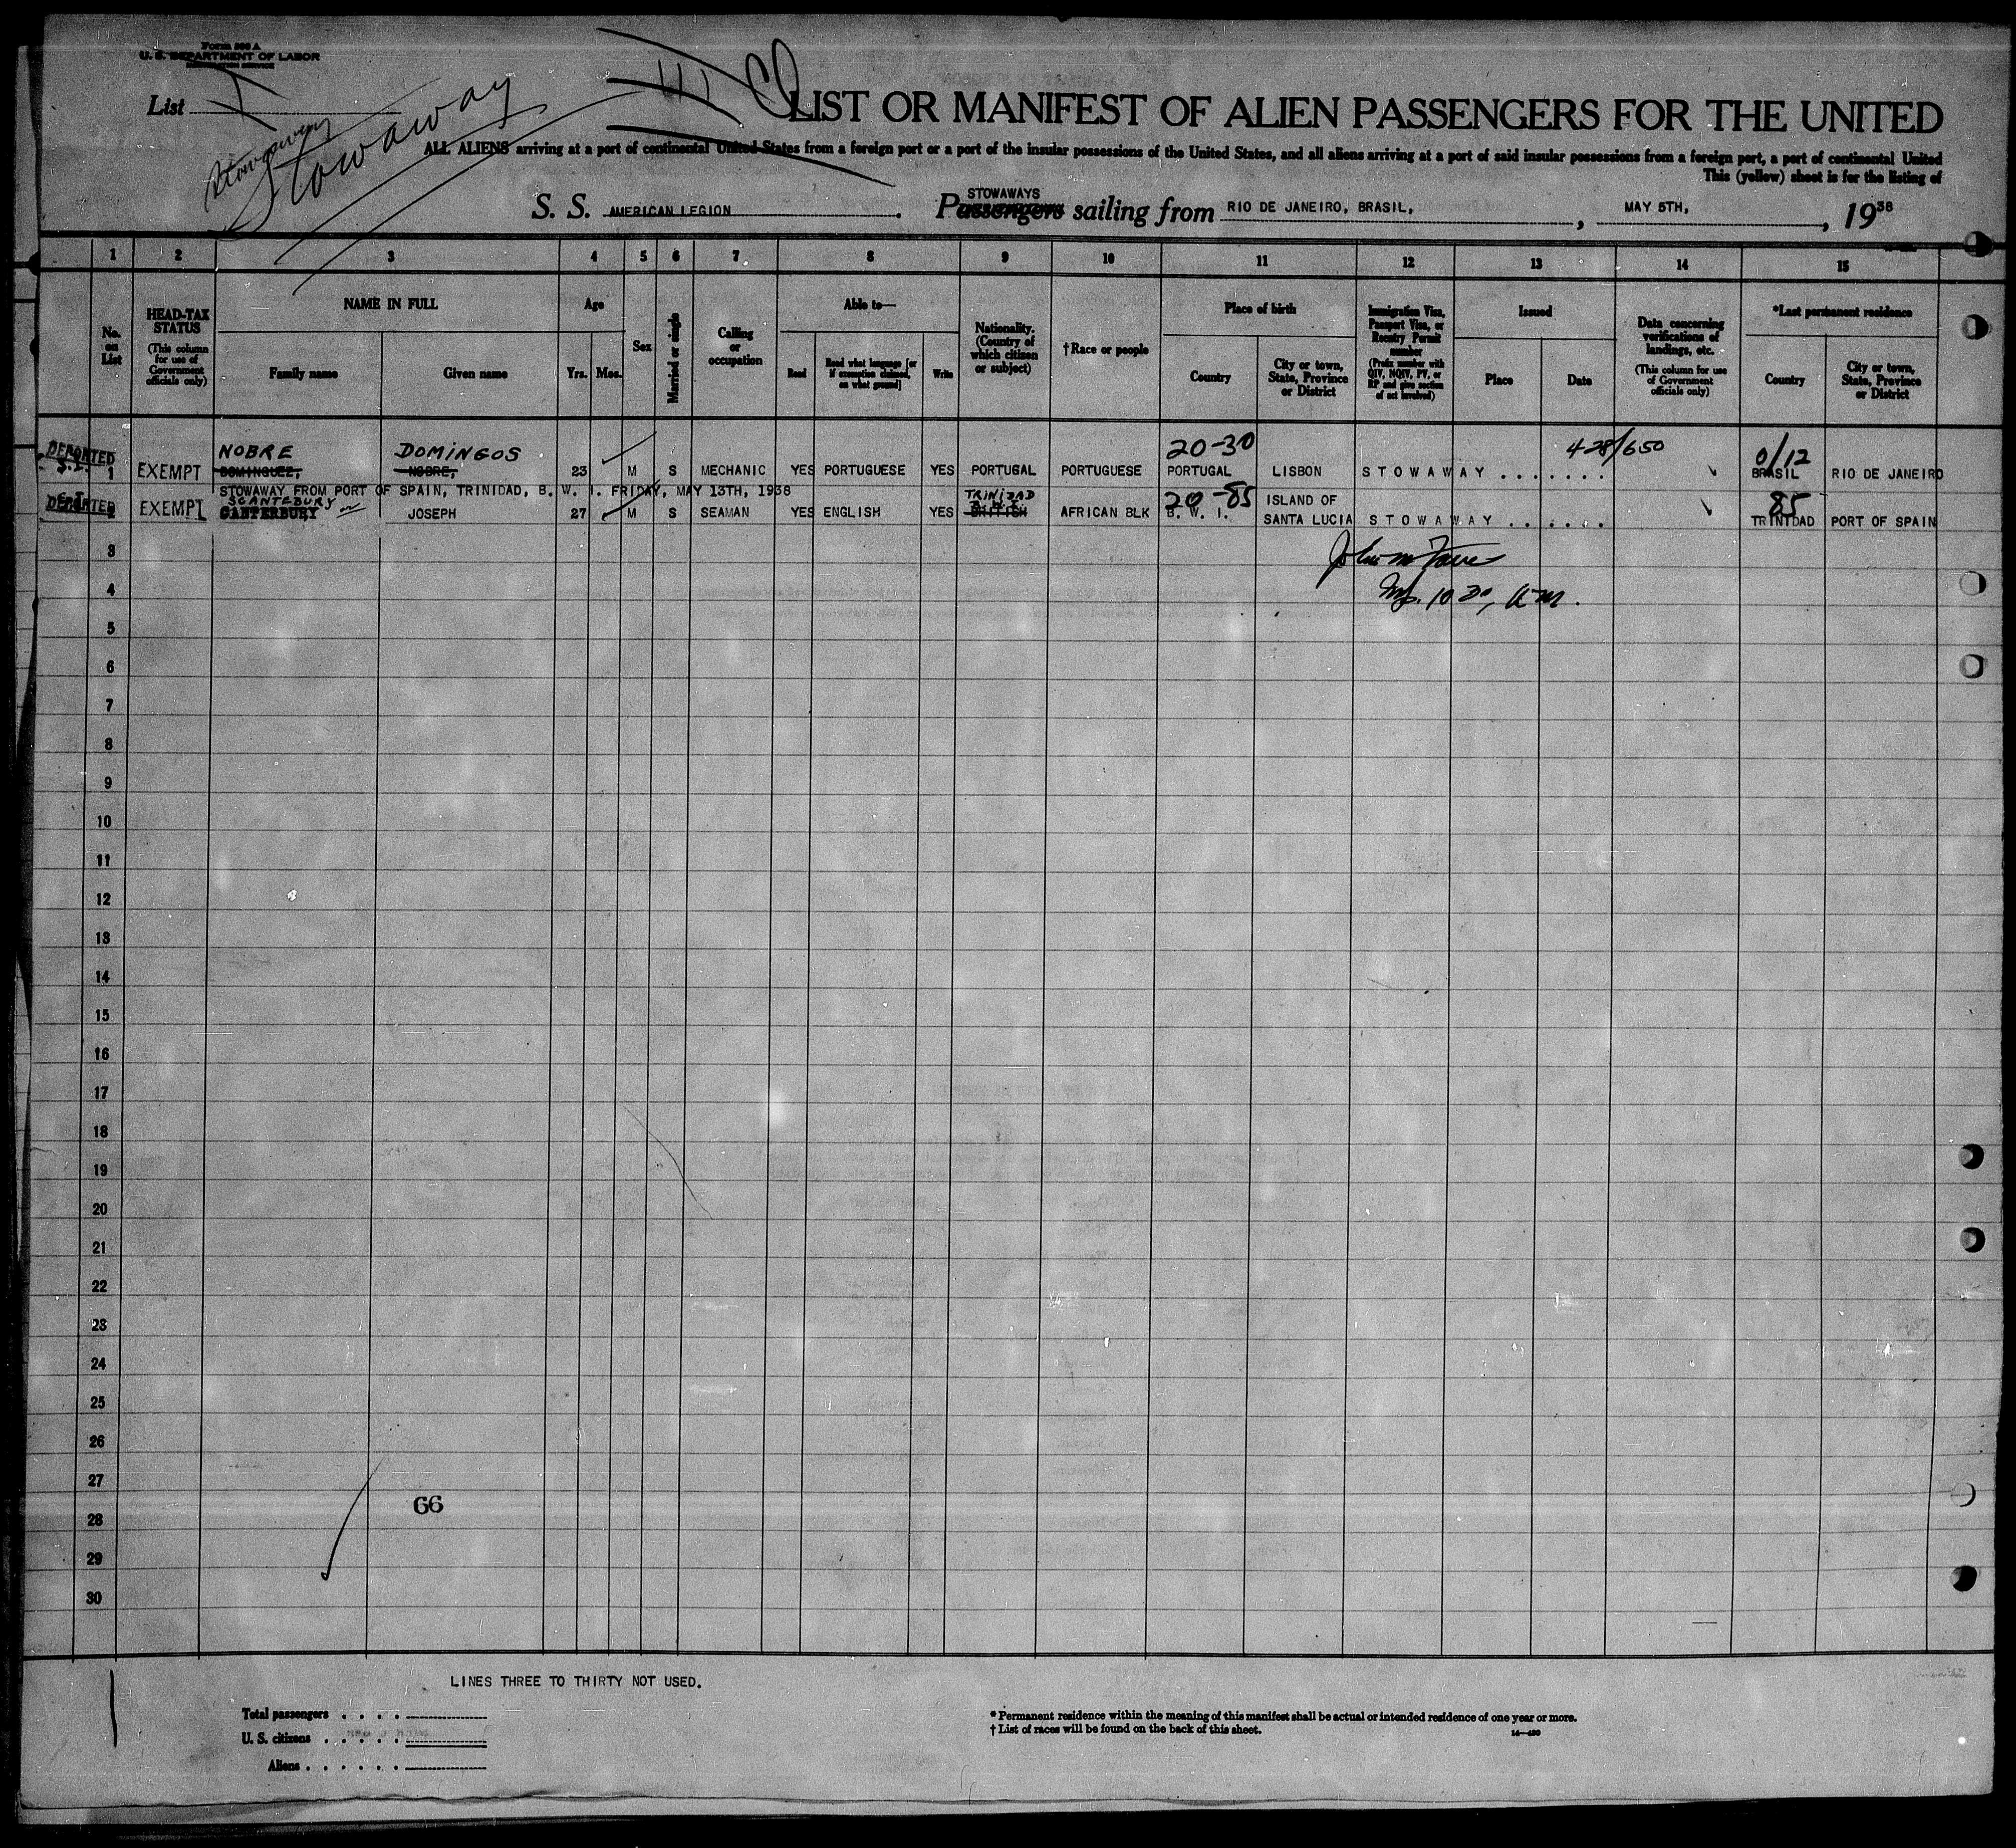 Form 500 A
U. S. DEPARTMENT OF LABOR
IMMIGRATION SERVICE
List
Stowaway
Stowaway
LIST OR MANIFEST OF ALIEN PASSENGERS FOR THE UNITED
ALL ALIENS arriving at a port of continental United States from a foreign port or a port of the insular possessions of the United States, and all aliens arriving at a port of said insular possessions from a foreign port, a port of continental United
This (yellow) sheet is for the listing of
STOWAWAYS
S. S. AMERICAN LEGION. Passengers sailing from RIO DE JANEIRO, BRASIL, , MAY 5TH, , 1938
1 2 3 4 5 6 7 8 9 10 11 12 13 14 15
No. on List
HEAD-TAX STATUS (This column for use of Government officials only)
NAME IN FULL
Family name Given name
Age
Yrs. Mos.
Sex
Married or single
Calling or occupation
Able to—
Read
Read what language [or if exemption claimed, on what ground]
Write
Nationality. (Country of which citizen or subject)
†Race or people
Place of birth
Country
City or town, State, Province or District
Immigration Visa, Passport Visa, or Reentry Permit number (Prefix number with QIV, NQIV, PV, or RP and give section of act involved)
Issued
Place Date
Data concerning verifications of landings, etc. (This column for use of Government officials only)
*Last permanent residence
Country
City or town, State, Province or District
NOBRE DOMINGOS 20-30 428/650 0/12
DEPORTED
1 EXEMPT DOMINGUEZ, NOBRE, 23 M S MECHANIC YES PORTUGUESE YES PORTUGAL PORTUGUESE PORTUGAL LISBON S T O W A W A Y . . . . . . . BRASIL RIO DE JANEIRO
STOWAWAY FROM PORT OF SPAIN, TRINIDAD, B. W. I. FRIDAY, MAY 13TH, 1938
SCANTEBURY TRINIDAD B.W.I. 20-85 ISLAND OF 85
DEPORTED
2 EXEMPT CANTERBURY JOSEPH 27 M S SEAMAN YES ENGLISH YES BRITISH AFRICAN BLK B. W. I. SANTA LUCIA S T O W A W A Y . . . . . . TRINIDAD PORT OF SPAIN
3
4
5
6
7
8
9
10
11
12
13
14
15
16
17
18
19
20
21
22
23
24
25
26
27
66
28
29
30
LINES THREE TO THIRTY NOT USED.
Total passengers . . . .
U. S. citizens . . . . .
Aliens . . . . . .
* Permanent residence within the meaning of this manifest shall be actual or intended residence of one year or more.
† List of races will be found on the back of this sheet.
14—430